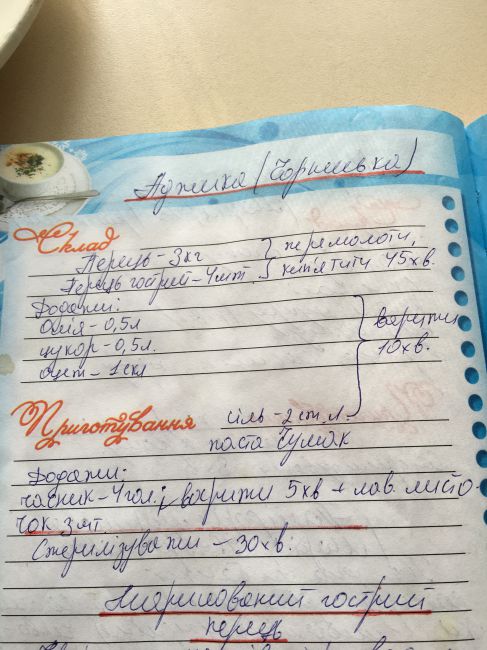 Аджика (Чорненька)
Склад
Перець - 3кг } перемолоти,
Перець гострий - 4шт. } кип'ятити 45хв.
Додати:
Олія - 0,5л } варити
цукор - 0,5л. 10хв.
оцет - 1скл
Приготування сіль - 2 ст. л.
паста Чумак
Додати:
часник - 4гол.; варити 5хв + лав. листо-
чок 3шт
Стерилізувати - 30хв.
Маринований гострий
перець